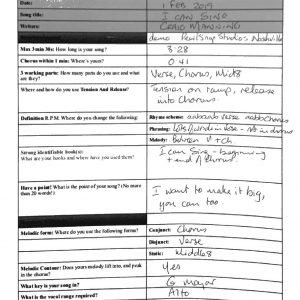 Date: 1 FEB 2019
Song title: I CAN SING
Writers: CRAIG MANNING
demo Studios Nashville
Max 3min 30s: How long is your song? 3:28
Chorus within 1 min: Where's yours? 0:41
3 working parts: How many parts do you use and what are they? Verse, Chorus, Mid8
Where and how do you use Tension And Release? Tension on ramp, release into Chorus.
Definition R.P.M: Where do you change the following: Rhyme scheme: verse
Phrasing: in verse - not in chorus
Melody: Between V + ch
Strong identifiable hook(s):
What are your hooks and where have you used them? I can Sing - beginning + end of Chorus
Have a point! What is the point of your song? (No more than 20 words!) I want to make it big, you can too.
Melodic form: Where do you use the following forms? Conjunct: Chorus
Disjunct: Verse
Static: Middle 8
Melodic Contour: Does yours melody lift into, and peak in the chorus? Yes
What key is your song in? G major
What is the vocal range required? Alto